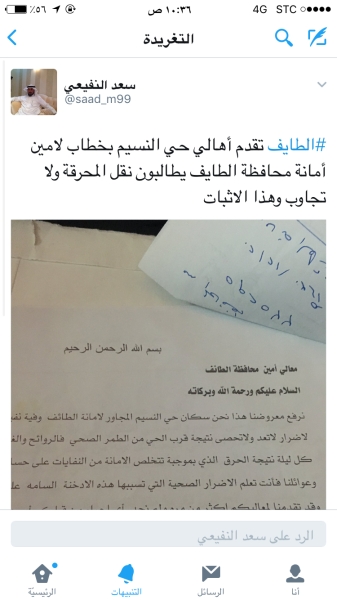 STC 4G ١٠:٣٦ ص ٥٦٪
التغريدة
سعد النفيعي
@saad_m99
#الطايف تقدم أهالي حي النسيم بخطاب لامين
أمانة محافظة الطايف يطالبون نقل المحرقة ولا
تجاوب وهذا الاثبات
بسم الله الرحمن الرحيم
معالي أمين محافظة الطائف
السلام عليكم ورحمة الله وبركاته
نرفع معروضنا هذا نحن سكان حي النسيم المجاور لامانة الطائف وفية
لاضرار لاتعد ولاتحصى نتيجة قرب الحي من الطمر الصحي فالروائح
كل ليلة نتيجة الحرق الذي بموجبة تتخلص الامانة من النفايات على
وعوائلنا فأنت تعلم الاضرار الصحية التي تسببها هذة الادخنة السامه
وقد تقدمنا لمعاليكم اكثر من
الرد على سعد النفيعي
أنا الرسائل التنبيهات الرئيسيّة